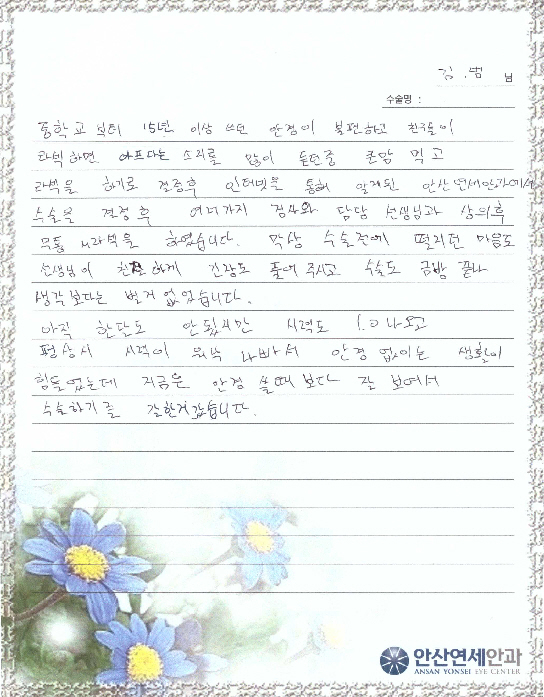 김. 범 님
수술명 :
중학교 부터 15년 이상 쓰던 안경이 불편하고 친구들이
라섹하면 아프다는 소리를 많이 듣던중 큰맘 먹고
라섹을 하기로 결정후 인터넷을 통해 알게된 안산연세안과에서
수술을 결정 후 여러가지 검사와 담당 선생님과 상의후
무통 m라섹을 하였습니다. 막상 수술전에 떨리던 마음도
선생님이 친절하게 긴장도 풀어 주시고 수술도 금방 끝나
생각보다는 별거 없었습니다.
아직 한달도 안됬지만 시력도 1.0 나오고
평상시 시력이 워낙 나빠서 안경 없이는 생활이
힘들었는데 지금은 안경 쓸때 보다 잘 보여서
수술하기를 잘한거 같습니다.
안산연세안과
ANSAN YONSEI EYE CENTER